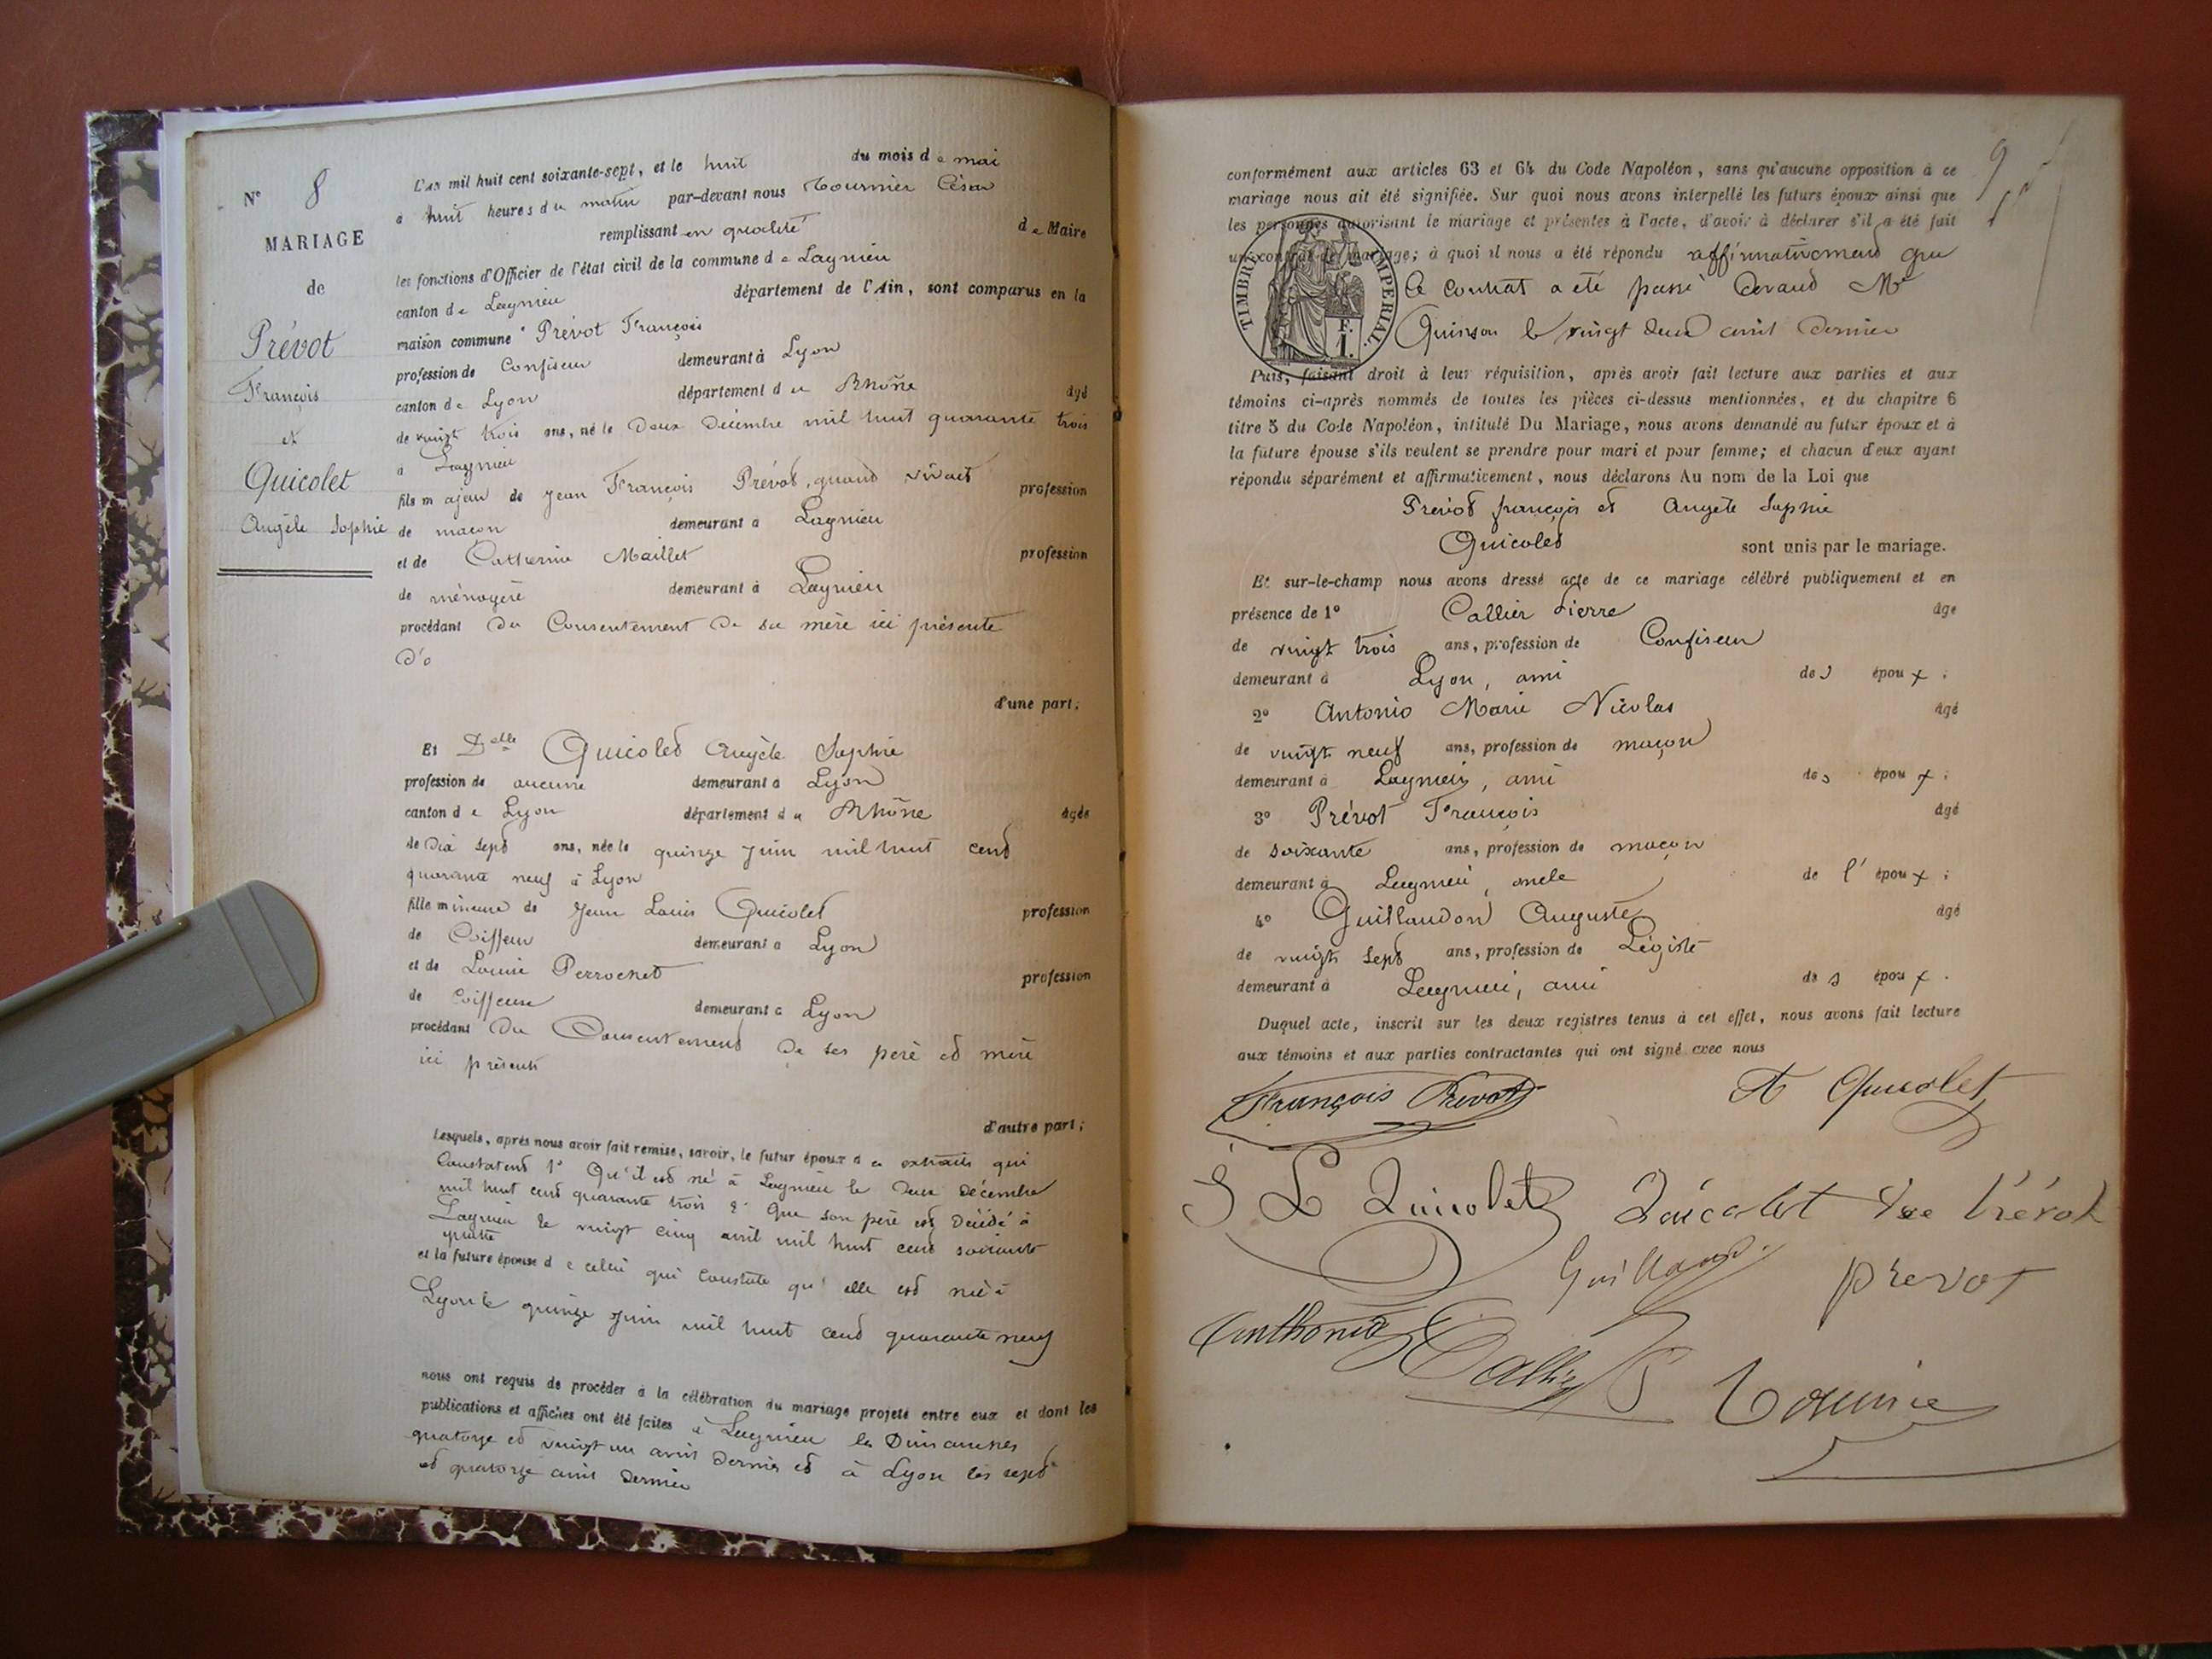 N° 8
MARIAGE
de
Prévot
François
et
Quicolet
Angèle Sophie
L'an mil huit cent soixante-sept, et le huit du mois de mai
à huit heures du matin par-devant nous Tournier César
remplissant en qualité de Maire
les fonctions d'Officier de l'état civil de la commune de Lagnieu
canton de Lagnieu département de l'Ain, sont comparus en la
maison commune Prévot François
profession de Confiseur demeurant à Lyon
canton de Lyon département du Rhône âgé
de vingt trois ans, né le deux Décembre mil huit quarante trois
à Lagnieu
fils majeur de Jean François Prévot, quand vivait profession
de maçon demeurant à Lagnieu
et de Catherine Maillet profession
de ménagère demeurant à Lagnieu
procédant du Consentement de sa mère ici présente
d'o
d'une part;
Et Delle Quicolet Angèle Sophie
profession de aucune demeurant à Lyon
canton de Lyon département du Rhône âgée
de dix sept ans, née le quinze juin mil huit cent
quarante neuf à Lyon
fille mineure de Jean Louis Quicolet profession
de Coiffeur demeurant à Lyon
et de Louise Perrochet profession
de Coiffeuse demeurant à Lyon
procédant du Consentement de ses père et mère
ici présents
d'autre part;
Lesquels, après nous avoir fait remise, savoir, le futur époux d es extraits qui
Constatent 1° Qu'il est né à Lagnieu le deux décembre
mil huit cent quarante trois 2° Que son père est décédé à
Lagnieu le vingt cinq avril mil huit cent soixante
quatre
et la future épouse d e celui qui Constate qu'elle est née à
Lyon le quinze juin mil huit cent quarante neuf
nous ont requis de procéder à la célébration du mariage projeté entre eux et dont les
publications et affiches ont été faites à Lagnieu les Dimanches
quatorze et vingt un avril dernier et à Lyon les sept
et quatorze avril dernier
9
conformément aux articles 63 et 64 du Code Napoléon, sans qu'aucune opposition à ce
mariage nous ait été signifiée. Sur quoi nous avons interpellé les futurs époux ainsi que
les personnes autorisant le mariage et présentes à l'acte, d'avoir à déclarer s'il a été fait
un contrat de mariage; à quoi il nous a été répondu affirmativement que
le contrat a été passé devant Me
Quinson le vingt deux avril dernier
TIMBRE IMPERIAL
F.
1.
Puis, faisant droit à leur réquisition, après avoir fait lecture aux parties et aux
témoins ci-après nommés de toutes les pièces ci-dessus mentionnées, et du chapitre 6
titre 5 du Code Napoléon, intitulé Du Mariage, nous avons demandé au futur époux et à
la future épouse s'ils veulent se prendre pour mari et pour femme; et chacun d'eux ayant
répondu séparément et affirmativement, nous déclarons Au nom de la Loi que
Prévot françois et Angèle Sophie
Quicolet sont unis par le mariage.
Et sur-le-champ nous avons dressé acte de ce mariage célébré publiquement et en
présence de 1° Callier Pierre âgé
de vingt trois ans, profession de Confiseur
demeurant à Lyon, ami des époux;
2° Antonio Marie Nicolas âgé
de vingt neuf ans, profession de maçon
demeurant à Lagnieu, ami des époux;
3° Prévot François âgé
de soixante ans, profession de maçon
demeurant à Lagnieu, oncle de l'époux;
4° Guillaudon Auguste âgé
de vingt sept ans, profession de Légiste
demeurant à Lagnieu, ami des époux.
Duquel acte, inscrit sur les deux registres tenus à cet effet, nous avons fait lecture
aux témoins et aux parties contractantes qui ont signé avec nous
François Prévot A Quicolet
J L Quicolet Quicolet Vve Prévot
prevot
Anthonio Callier P Tournier